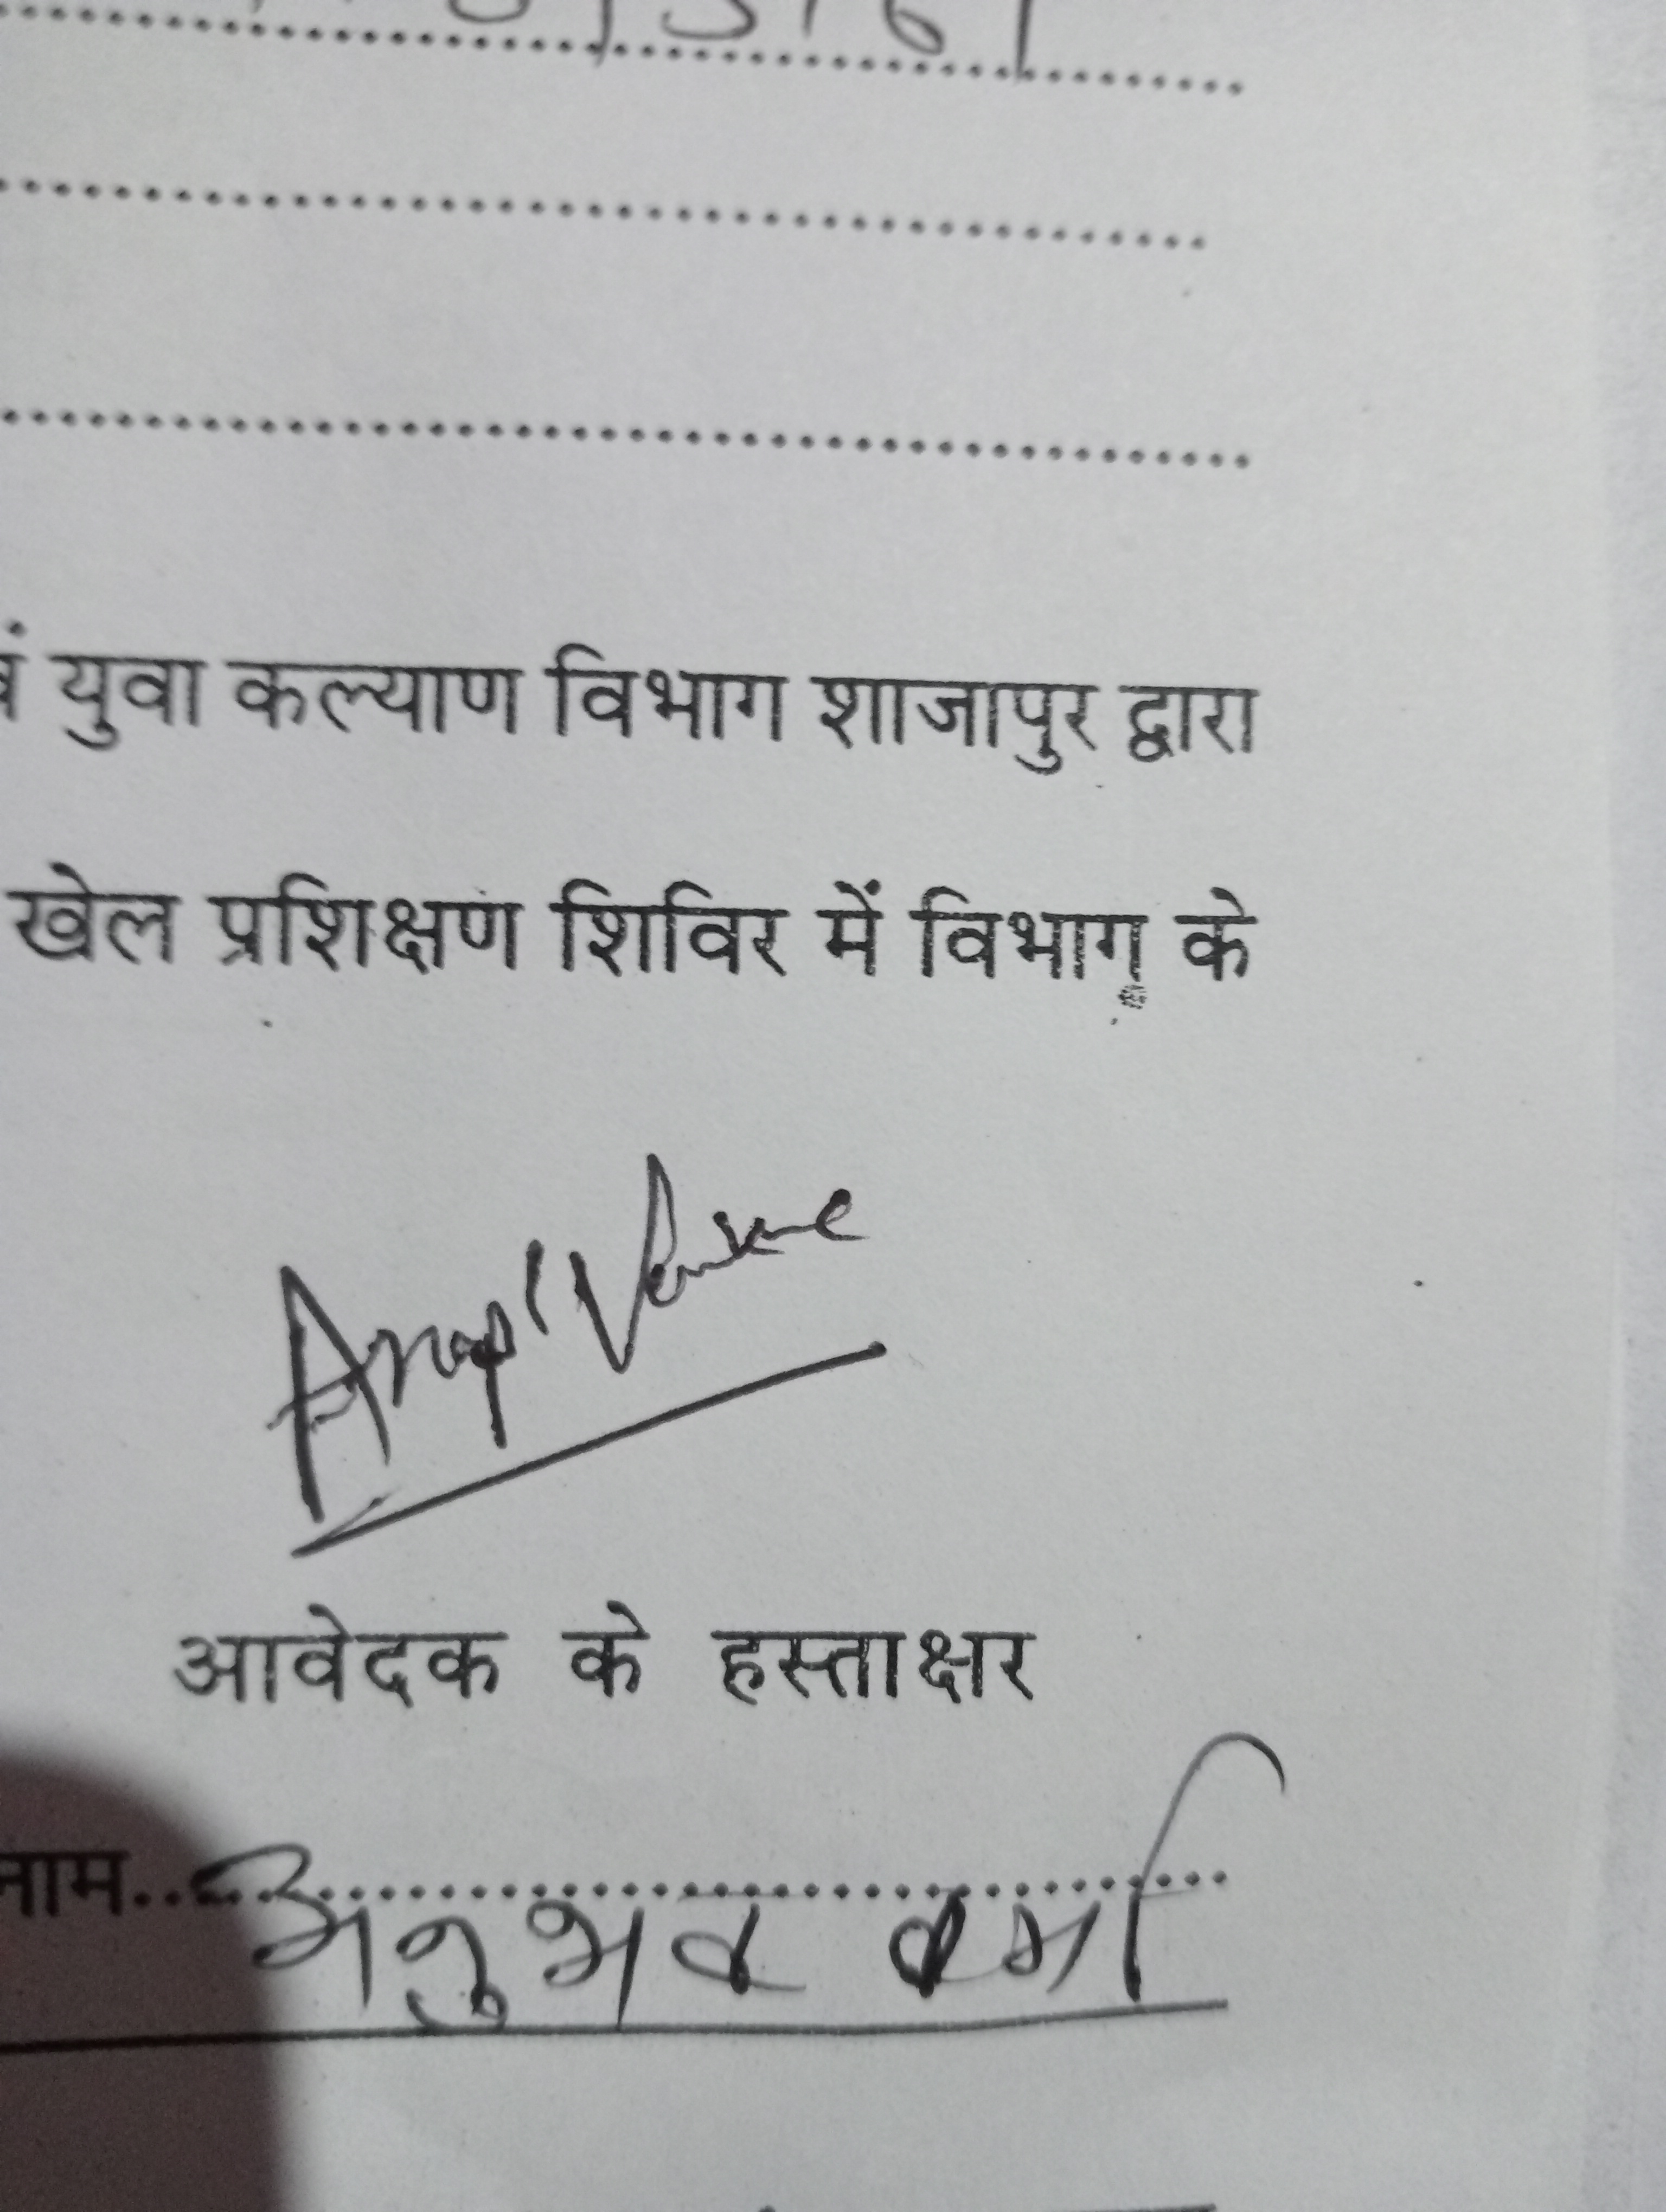 वं युवा कल्याण विभाग शाजापुर द्वारा
खेल प्रशिक्षण शिविर में विभाग के
आवेदक के हस्ताक्षर
नाम.. अनुभव वर्मा